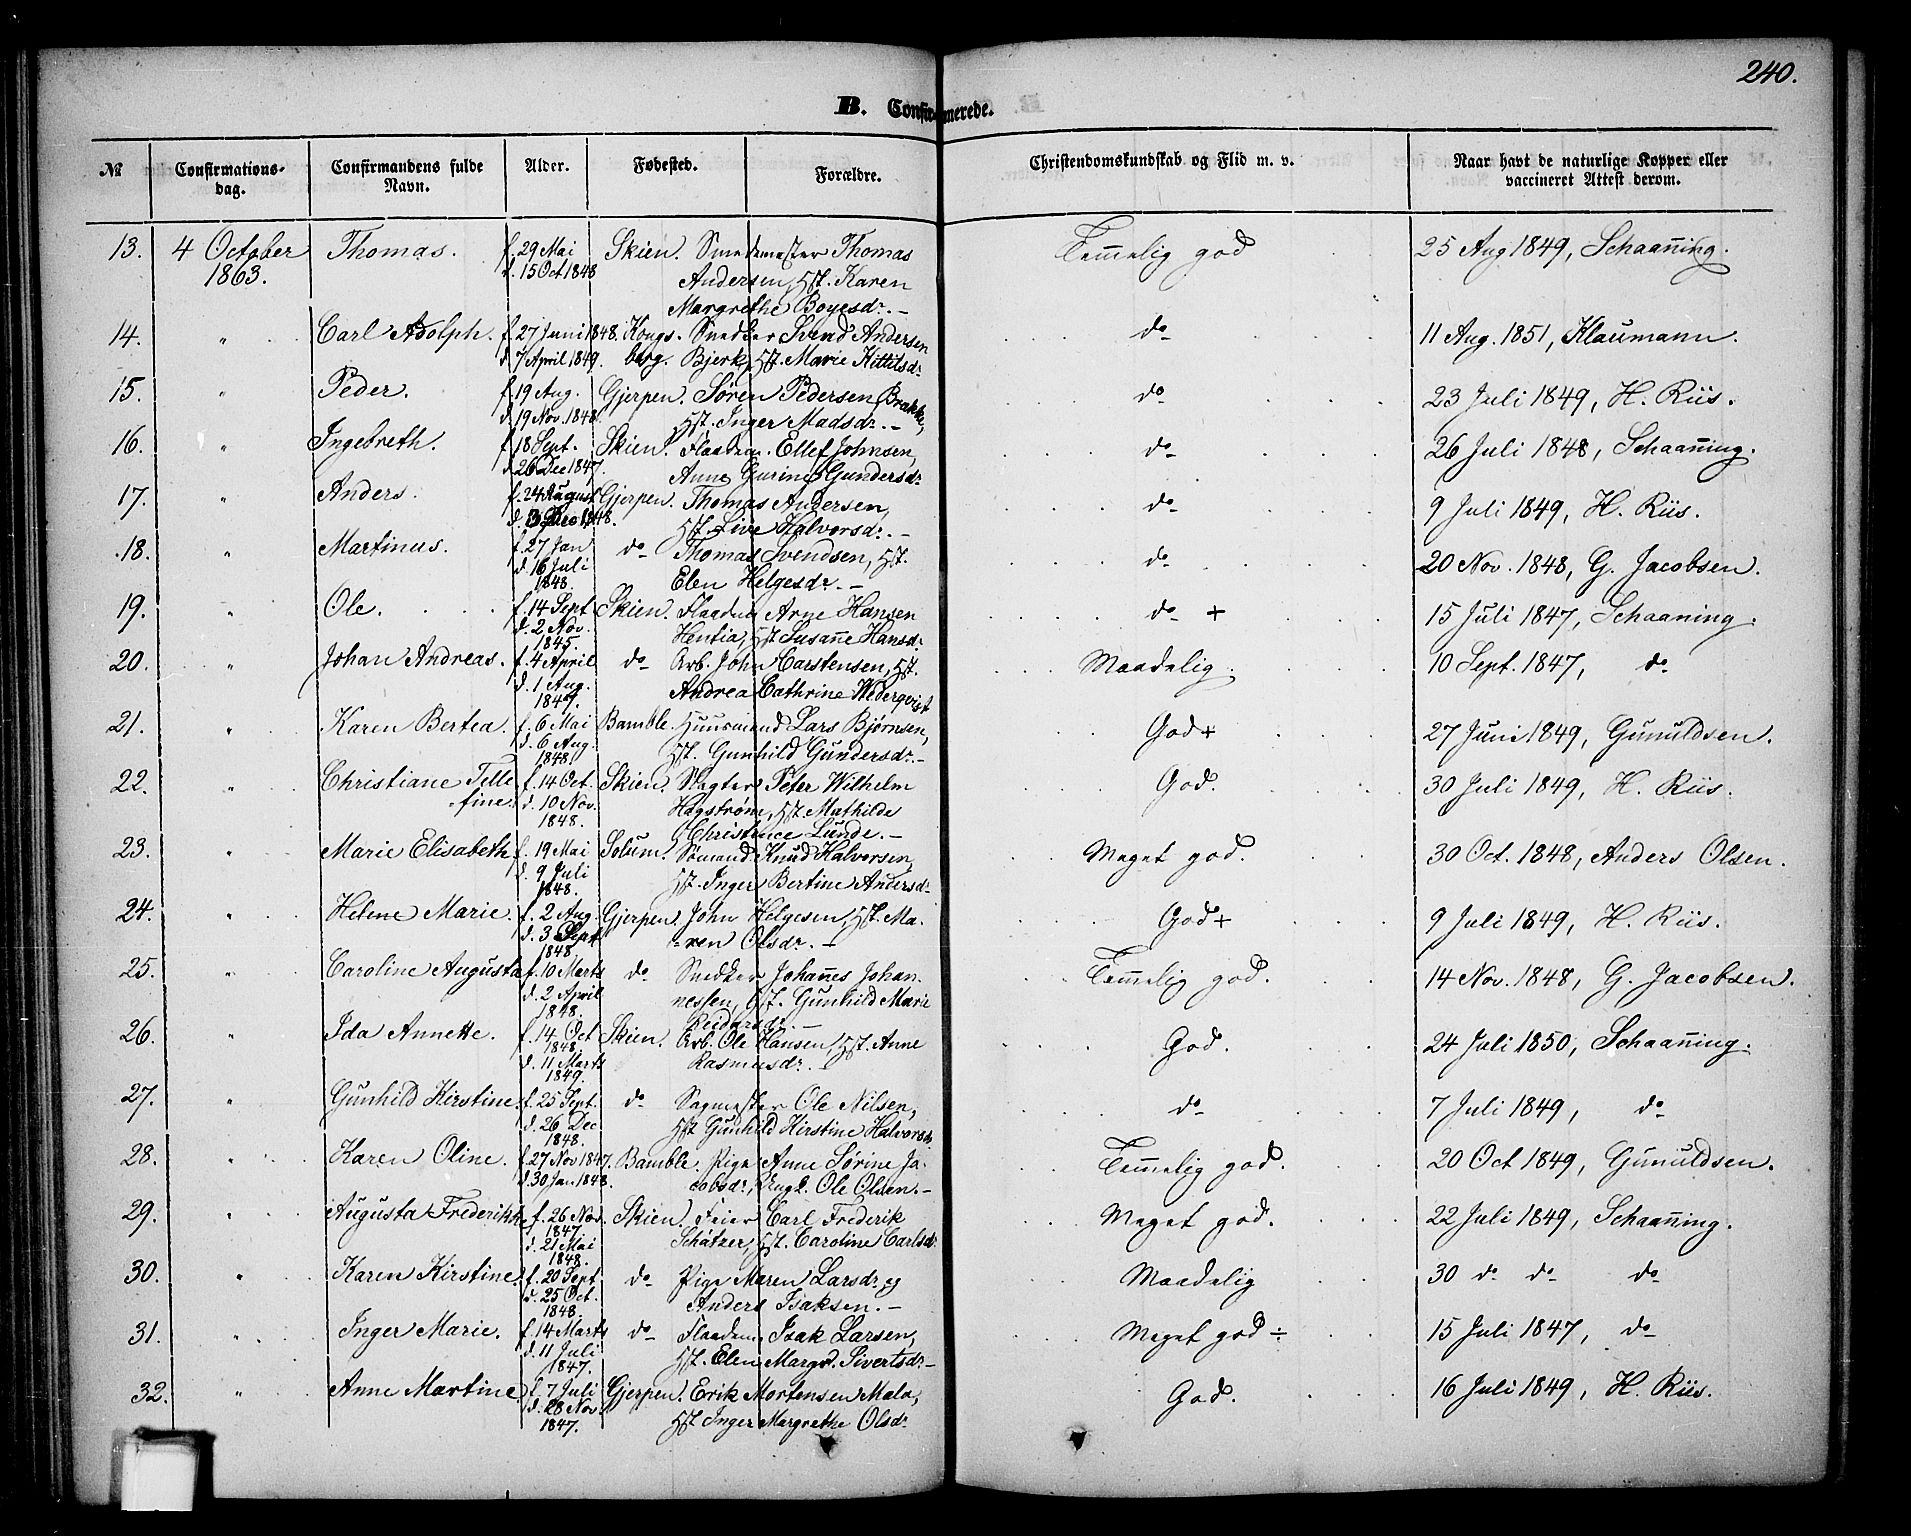 240.
B. Confirmerede.
№ Confirmations-dag. Confirmandens fulde Navn. Alder. Fødested. Forældre. Christendomskundskab og Flid m. v. Naar havt de naturlige Kopper eller vaccineret Attest derom.
13. 4 October Thomas. f. 29 Mai Skien. Smedemester Thomas Temmelig god 25 Aug 1849, Schaaning.
1863. d. 15 Oct 1848 Andersen, Hst. Karen
Margrethe Boyesdr. –
14. " Carl Adolph. f. 27 Juni 1848. Kongs- Snedker Svend Andersen do 11 Aug. 1851, Klaumann.
d. 7 April 1849. berg. Bjerk, Hst. Marie Kittilsdr
15. " Peder. f. 19 Aug. Gjerpen. Søren Pedersen Brække, do 23 Juli 1849, H. Riis.
d. 19 Nov. 1848 Hst. Inger Madsdr. –
16. " Ingebreth. f. 18 Sept. Skien. Flaadm. Ellef Johnsen, do 26 Juli 1848, Schaaning.
d. 26 Dec 1847. Anne Gurine Gundersdr
17. " Anders. f. 24 August Gjerpen. Thomas Andersen, do 9 Juli 1849, H. Riis.
d. 3 Dec 1848. Hst. Live Halvorsdr. –
18. " Martinus. f. 27 Jan do Thomas Svendsen, Hst. do 20 Nov. 1848, G. Jacobsen.
d. 16 Juli Elen Helgesdr. –
1848.
19. " Ole. f. 14 Sept Skien. Flaadm Arne Hansen do + 15 Juli 1847, Schaaning.
d. 2 Nov. Hst. Susanne Hansdr.
1845
20. " Johan Andreas. f. 4 April do Arb. John Carstensen, Hst. Maadelig. 10 Sept. 1847, do
d. 1 Aug. Andrea Cathrine Wederqvist
1847.
21. " Karen Bertea. f. 6 Mai Bamble. Huusmand Lars Bjørnsen, God + 27 Juni 1849, Gunuldsen.
d. 6 Aug. Hst. Gunhild Gundersdr. –
1848
22. " Christiane Tille- f. 14 Oct. Skien. Slagter Peter Wilhelm God. 30 Juli 1849, H. Riis.
fine. d. 10 Nov. Hagstrøm, Hst. Mathilde
1848. Christence Lunde. –
23. " Marie Elisabeth f. 19 Mai Solum. Sømand Knud Halvorsen, Meget god. 30 Oct. 1848, Anders Olsen.
d. 9 Juli Hst. Inger Bertine Andersdr
1848.
24. " Helene Marie. f. 2 Aug. Gjerpen. John Helgesen, Hst. Ma- God + 9 Juli 1849, H. Riis.
d. 3 Sept ren Olsdr. –
1848
25. " Caroline Augusta f. 10 Marts do Snedker Johannes Johan- Temmelig god. 14 Nov. 1848, G. Jacobsen.
d. 2 April nessen, Hst. Gunhild Marie
1848. Reidarsdr. –
26. " Ida Annette. f. 14 Oct Skien. Arb. Ole Hansen, Hst. Anne God. 24 Juli 1850, Schaaning.
1848 Rasmusdr. –
d. 11 Marts
1849.
27. " Gunhild Kirstine. f. 25 Sept. do Sagmester Ole Nilsen, do 7 Juli 1849, do
d. 26 Dec Hst Gunhild Kirstine Halvorsdr
1848.
28. " Karen Oline. f. 27 Nov 1847. Bamble. Pige Anne Sørine Ja- Temmelig god. 20 Oct 1849, Gunuldsen.
d. 30 Jan 1848. cobsdr, Ungk. Ole Olsen. –
29. " Augusta Frederikke f. 26 Nov. Skien. Feier Carl Frederik Meget god. 22 Juli 1849, Schaaning.
1847 Schätzer, Hst. Caroline Carlsdr
d. 21 Mai
1848.
30. " Karen Kirstine. f. 20 Sept do Pige Maren Larsdr. og Maadelig 30 do do do
d. 25 Oct. Anders Isaksen. –
1848.
31. " Inger Marie. f. 14 Marts do Flaadm. Isak Larsen, Meget god ÷ 15 Juli 1847, do
d. 11 Juli Hst. Elen Margr. Sivertsdr –
1847.
32. " Anne Martine f. 7 Juli Gjerpen. Erik Mortensen Mæla, God. 16 Juli 1849, H. Riis.
d. 28 Nov. Hst Inger Margrethe Olsdr
1847.